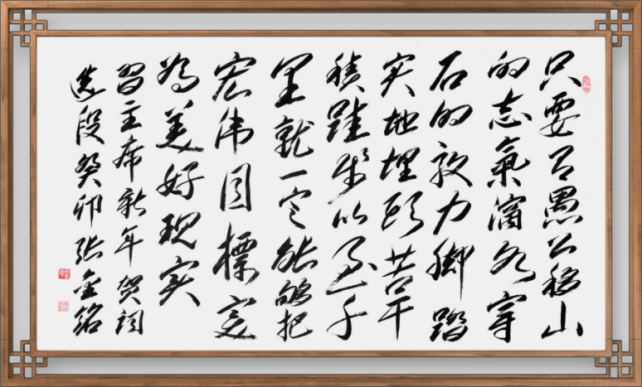 只要有愚公移山
的志氣滴水穿
石的毅力脚踏
实地埋头苦干
積跬步以至千
里就一定能够把
宏伟目標变
为美好现实
習主席新年贺词
选段癸卯张金铭